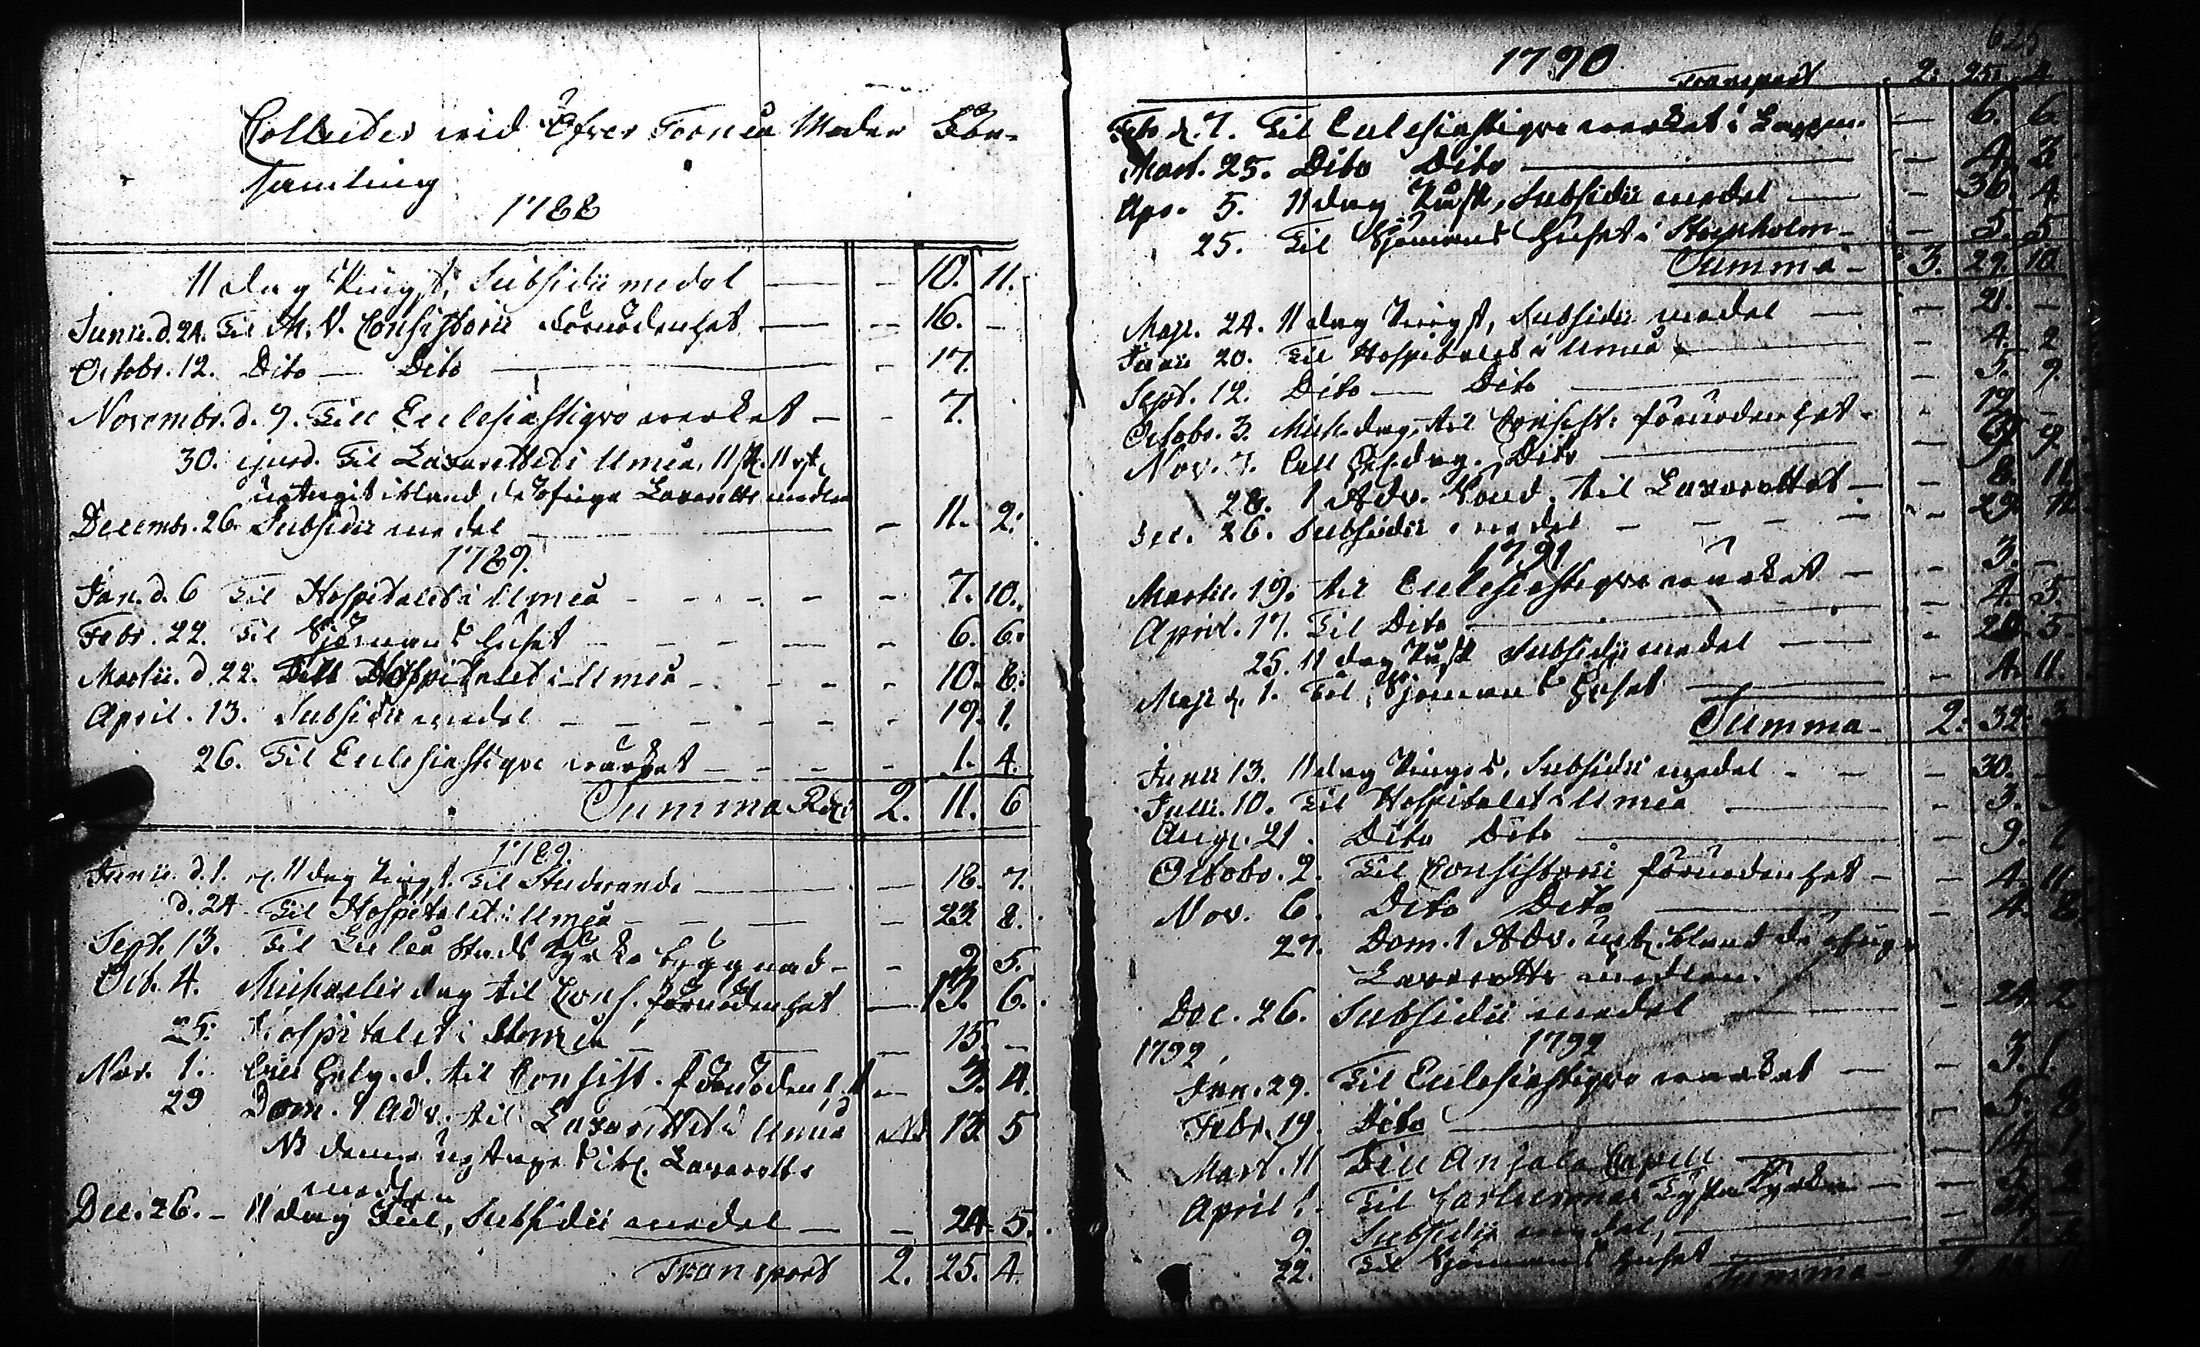 Collecter wid Öfver Torneå Moder För-
samling
1788
II dag Pingst, Subsidii medel — - 10. 11.
Junii. d. 24. Til M. V. Consistorii förnödenhet — - 16. -
Octobr. 12. Dito — Dito — - 17.
Novembr. d. 9. Till Ecclesiastiqve werket — - 7.
30. ejusd. Til Lazarettet i Umeå, 11 sk. 11 rst.
uptagit ibland de öfrige Lazaretts medlen
Decembr. 26. Subsidii medel — - 11. 2.
1789.
Jan. d. 6 Til Hospitalet i Umeå - - - - 7. 10.
Febr. 22. Til Sjömans huset - - - - 6. 6.
Martii. d. 22. Till Hospitalet i Umeå - - - - 10. 8.
April. 13. Subsidii medel - - - - 19. 1.
26. Til Ecclesiastiqve wärket - - - - 1. 4.
Summa Rdr 2. 11. 6
1789.
Junii. d. 1. II dag Pingst. Til Studerande — - 18. 7.
d. 24 Til Hospitalet i Umeå - - - 23. 8.
Sept. 13. Til Luleå Stads Kyrko byggnad - - 9. 5.
Oct. 4. Michaelis dag til Cons. förnödenhet — 13. 6.
25. Hospitalet i Umeå - - - 15. -
Nov. 1. Till Consist. förnödenh. - 3. 4.
29 Dom. 1 Adv. til Lazarettet i Umeå NB 13. 5
NB denne uptagen Lazaretts
medlen
Dec. 26. - II dag Jul, Subsidii medel — - 24. 5.
Transport 2. 25. 4.
625
1790
Transport 2. 25. 4
Febr. d. 7. Til Ecclesiastiqve werket i Lappm. — 6. 6.
Mart. 25. Dito Dito — - 4. 3.
Apr. 5. II dag Påsk, Subsidii medel — - 36. 4.
25. Til Sjömans huset i Stockholm - - 5. 5
Summa - 3. 29. 10.
Maji. 24. II dag Pingst, Subsidii medel — - 21. -
Junii 20. Til Hospitalet i Umeå — - 4. 2
Sept. 12. Dito — Dito — - 5. 9.
Octobr. 3. Mich. dag, til Consist. förnödenhet - - 19. -
Nov. 7. Dito — - 9.
28. 1 Adv. Sönd. til Lazarettet - - 8. 11.
Dec. 26. Subsidii medel - - - - 29. 11.
1791
Martii. 19. til Ecclesiastiqve wärket — - 3. -
April. 17. Til Dito — - 4. 5.
25. II dag Påsk Subsidii medel — - 5.
Maji d. 1. Til Sjömans huset — - 4. 11.
Summa - 2. 32. 3
Junii 13. II dag Pingst, Subsidii medel - - - 30. -
Julii. 10. Til Hospitalet i Umeå — - 3.
Aug. 21. Dito Dito — - 9.
Octobr. 2. Til Consistorii förnödenhet - - 4. 11.
Nov. 6. Dito Dito — - 4. 8.
27. Dom. 1 Adv. bland de öfrige
Lazaretts medlen.
Dec. 26. Subsidii medel — - 24. 2.
1792. 1792
Jan. 29. Til Ecclesiastiqve wärket — - 3. 1.
Febr. 19. Dito — - 5. 8
Mart. 11 Till Capell — - 14. 1
April 1. Til Tyska Kyrka — -
9. Subsidii medel, —
22. Til Sjömans huset —
Summa - 2.